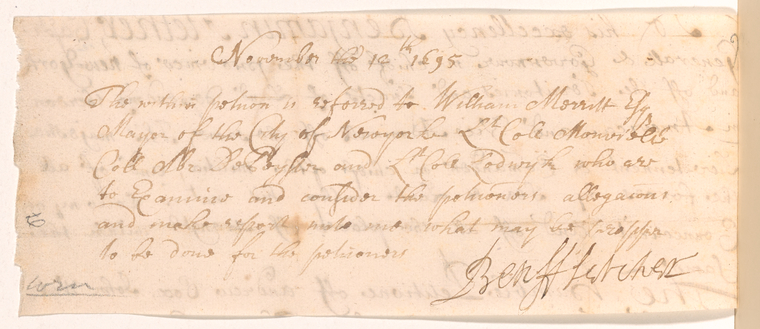 November the 12th 1695
The within petition is referred to William Merritt Esq
Mayor of the City of Newyorke Lt Cole Monvielle
Coll Abr DePeyster and Lt Cole Lodwyk who are
to Examine and consider the petitioners allegacons
and make report unto me what may be propper
to be done for the petitioners
Ben Ffletcher